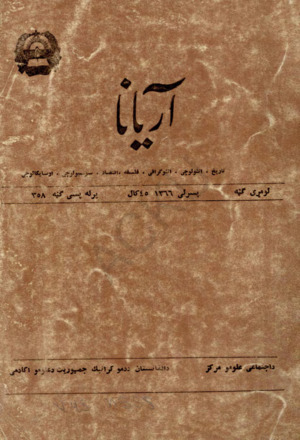 آریانا
تاریخ ، اتنولوجی ، اتنوگرافی ، فلسفه ، اقتصاد ،
لومړی ګڼه پسرلی ۱۳۶۶ ۴۵ کال پرله پسې ګڼه ۳۵۸
د افغانستان ددموکراتیک جمهوریت دعلومو اکادمی
داجتماعی علومو مرکز